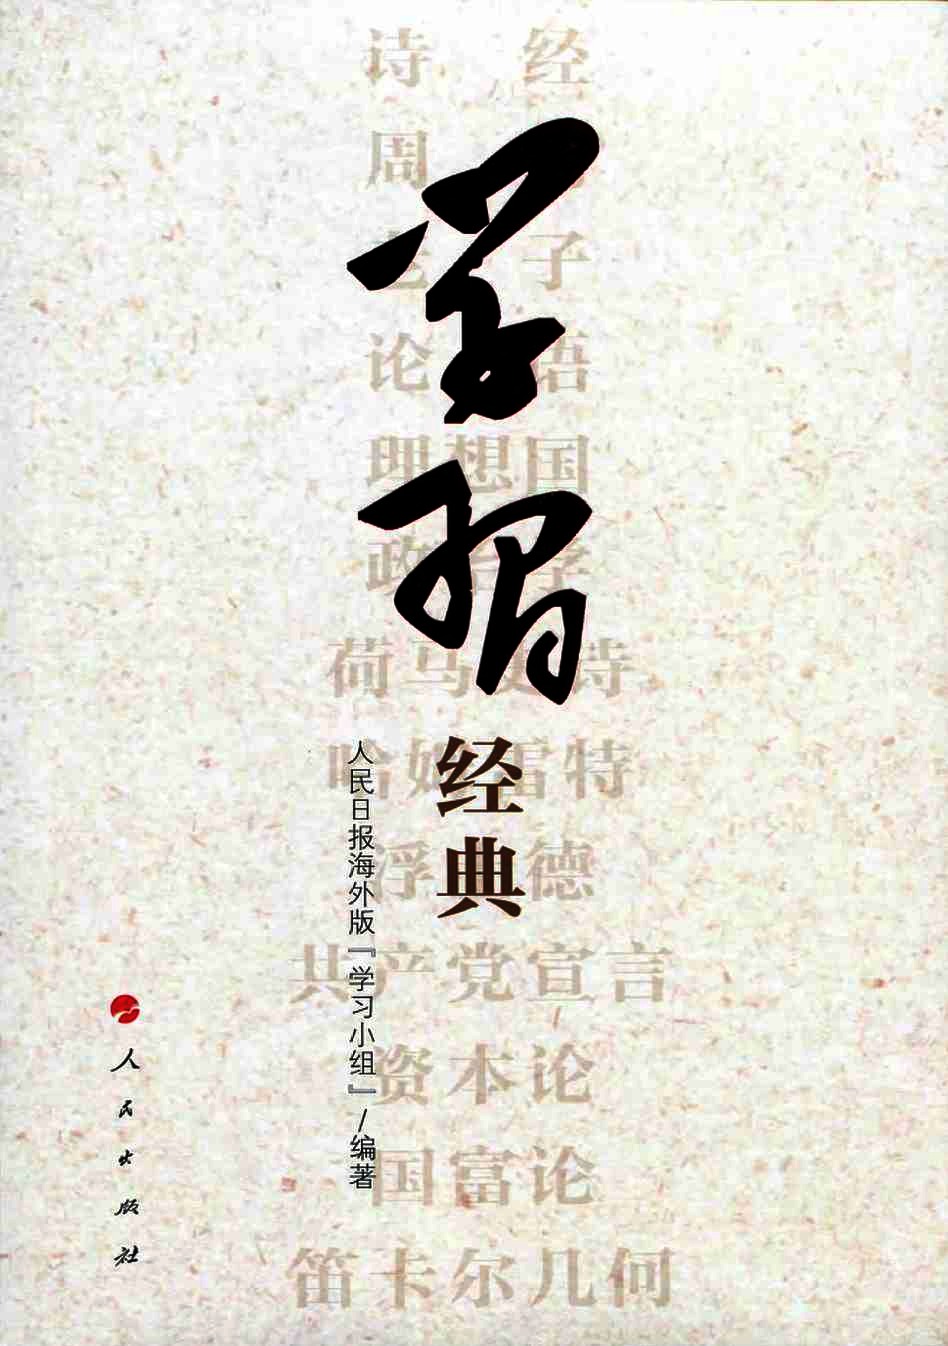 诗经
周易
老子
论语
理想国
政治学
荷马史诗
哈姆雷特
浮士德
共产党宣言
资本论
国富论
笛卡尔几何
学习
经典
人民日报海外版『学习小组』/编著
人民出版社